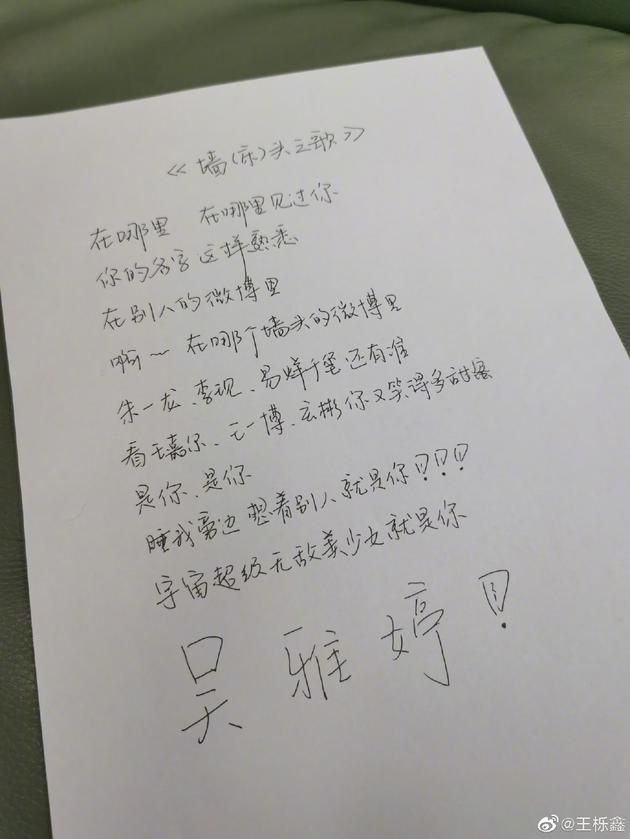 《墙(床)头之歌》
在哪里 在哪里见过你
你的名字这样熟悉
在别人的微博里
啊~在哪个墙头的微博里
朱一龙、李现、易烊千玺还有谁
看王嘉尔、王一博、玄彬你又笑得多甜蜜
是你、是你
睡我旁边想着别人就是你!!!
宇宙超级无敌美少女就是你
吴雅婷!
@王栎鑫